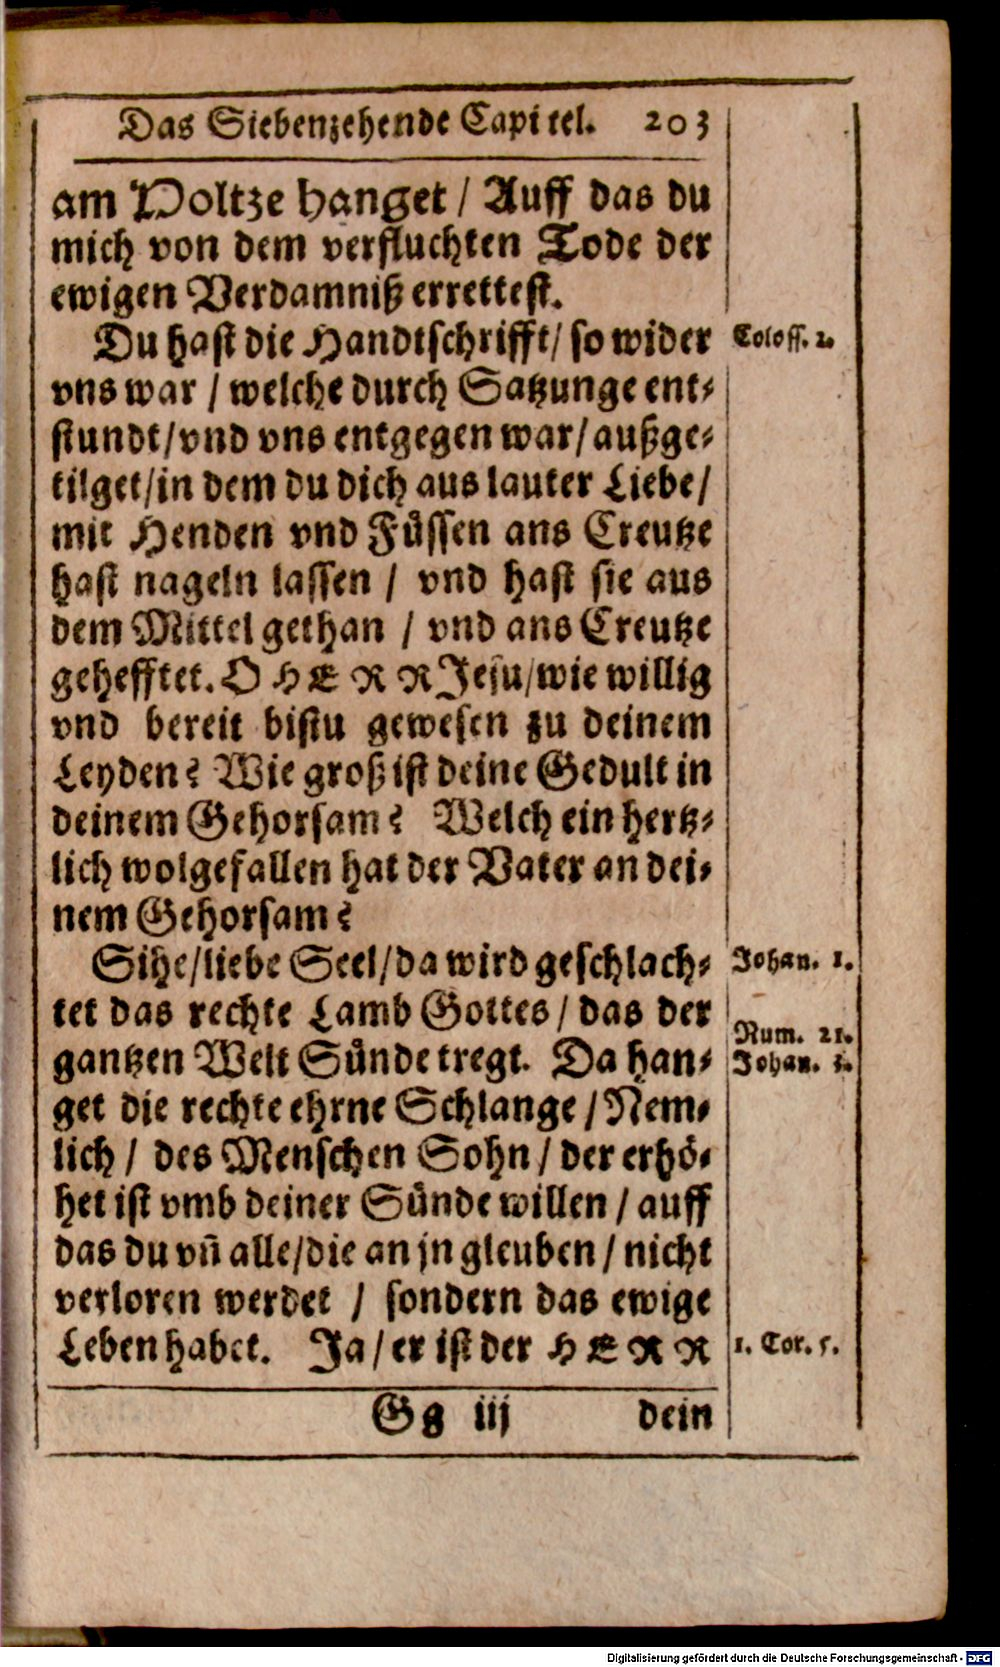 Das Siebenzehende Capitel. 203
am Holtze hanget / Auff das du
mich von dem verfluchten Tode der
ewigen Verdamniß errettest.
Du hast die Handtschrifft / so wider
Coloss. 2.
vns war / welche durch Satzunge ent-
stundt / vnd vns entgegen war / außge-
tilget / in dem du dich aus lauter Liebe /
mit Henden vnd Füssen ans Creutze
hast nageln lassen / vnd hast sie aus
dem Mittel gethan / vnd ans Creutze
gehefftet. O HERR Jesu / wie willig
vnd bereit bistu gewesen zu deinem
Leyden? Wie groß ist deine Gedult in
deinem Gehorsam? Welch ein hertz-
lich wolgefallen hat der Vater an dei-
nem Gehorsam?
Sihe / liebe Seel / da wird geschlach-
Johan. 1.
tet das rechte Lamb Gottes / das der
Num. 21.
gantzen Welt Sünde tregt. Da han-
Johan. 3.
get die rechte ehrne Schlange / Nem-
lich / des Menschen Sohn / der erhö-
het ist vmb deiner Sünde willen / auff
das du vñ alle / die an jn gleuben / nicht
verloren werdet / sondern das ewige
Leben habet. Ja / er ist der HERR
1. Cor. 5.
Gg iij dein
Digitalisierung gefördert durch die Deutsche Forschungsgemeinschaft - DFG